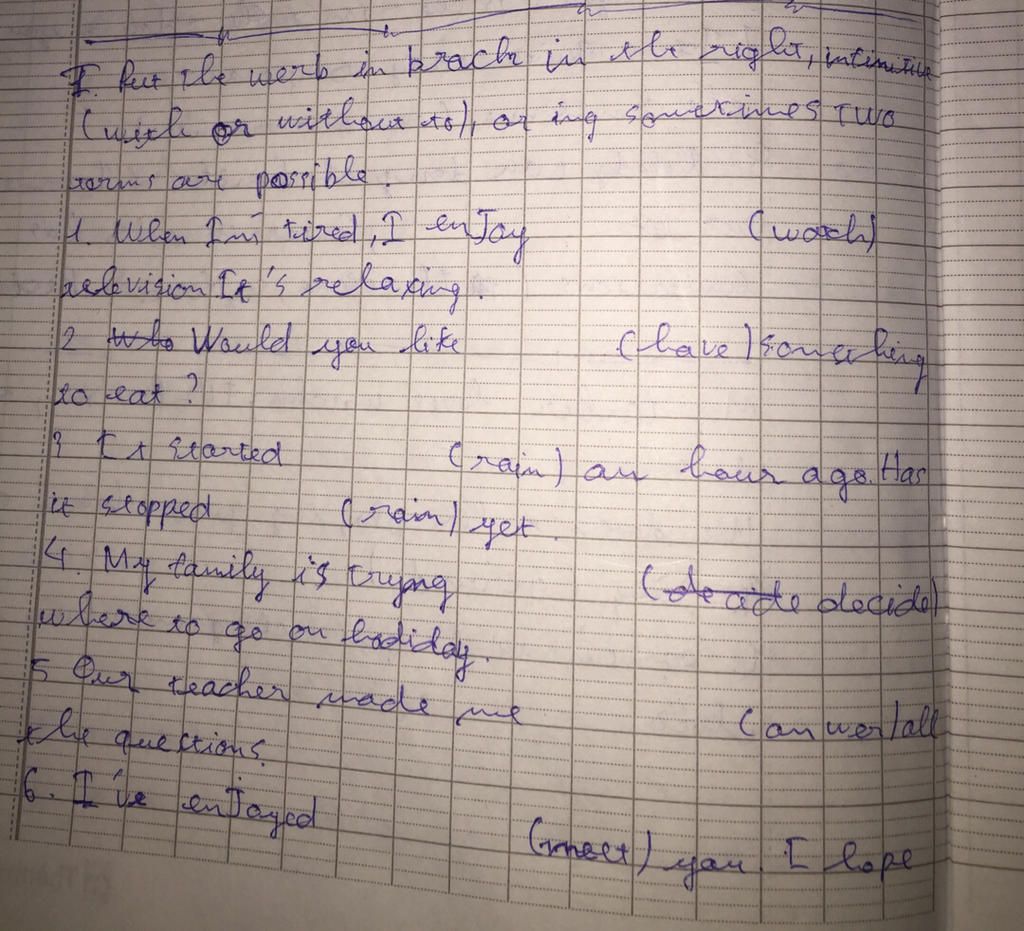 I. Put the werb in brach in the right, infinitive
(with or without to), or ing sometimes two
forms are possible.
1. When I'm tired, I enjoy (watch)
television It's relaxing.
2 Who Would you like (have) something
to eat ?
3 It started (rain) an hour ago. Has
it stopped (rain) yet.
4. My family is trying (decide decide)
where to go on hodiday.
5 Our teacher made me (anwer) all
the questions.
6. I've enjoyed (meet) you. I hope